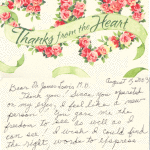 Thanks from the Heart
August
Dear M.D.
Thank you. Since you operated
on my eyes, I feel like a new
person. You gave me the
freedom to see as well as I
can see. I wish I could find
the right words to express